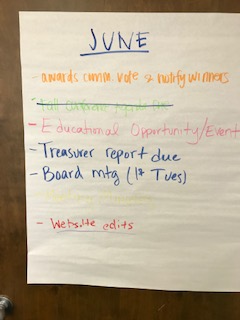 JUNE
- awards comm. vote & notify winners
- Educational Opportunity/Event
- Treasurer report due
- Board mtg (1st Tues)
- Website edits